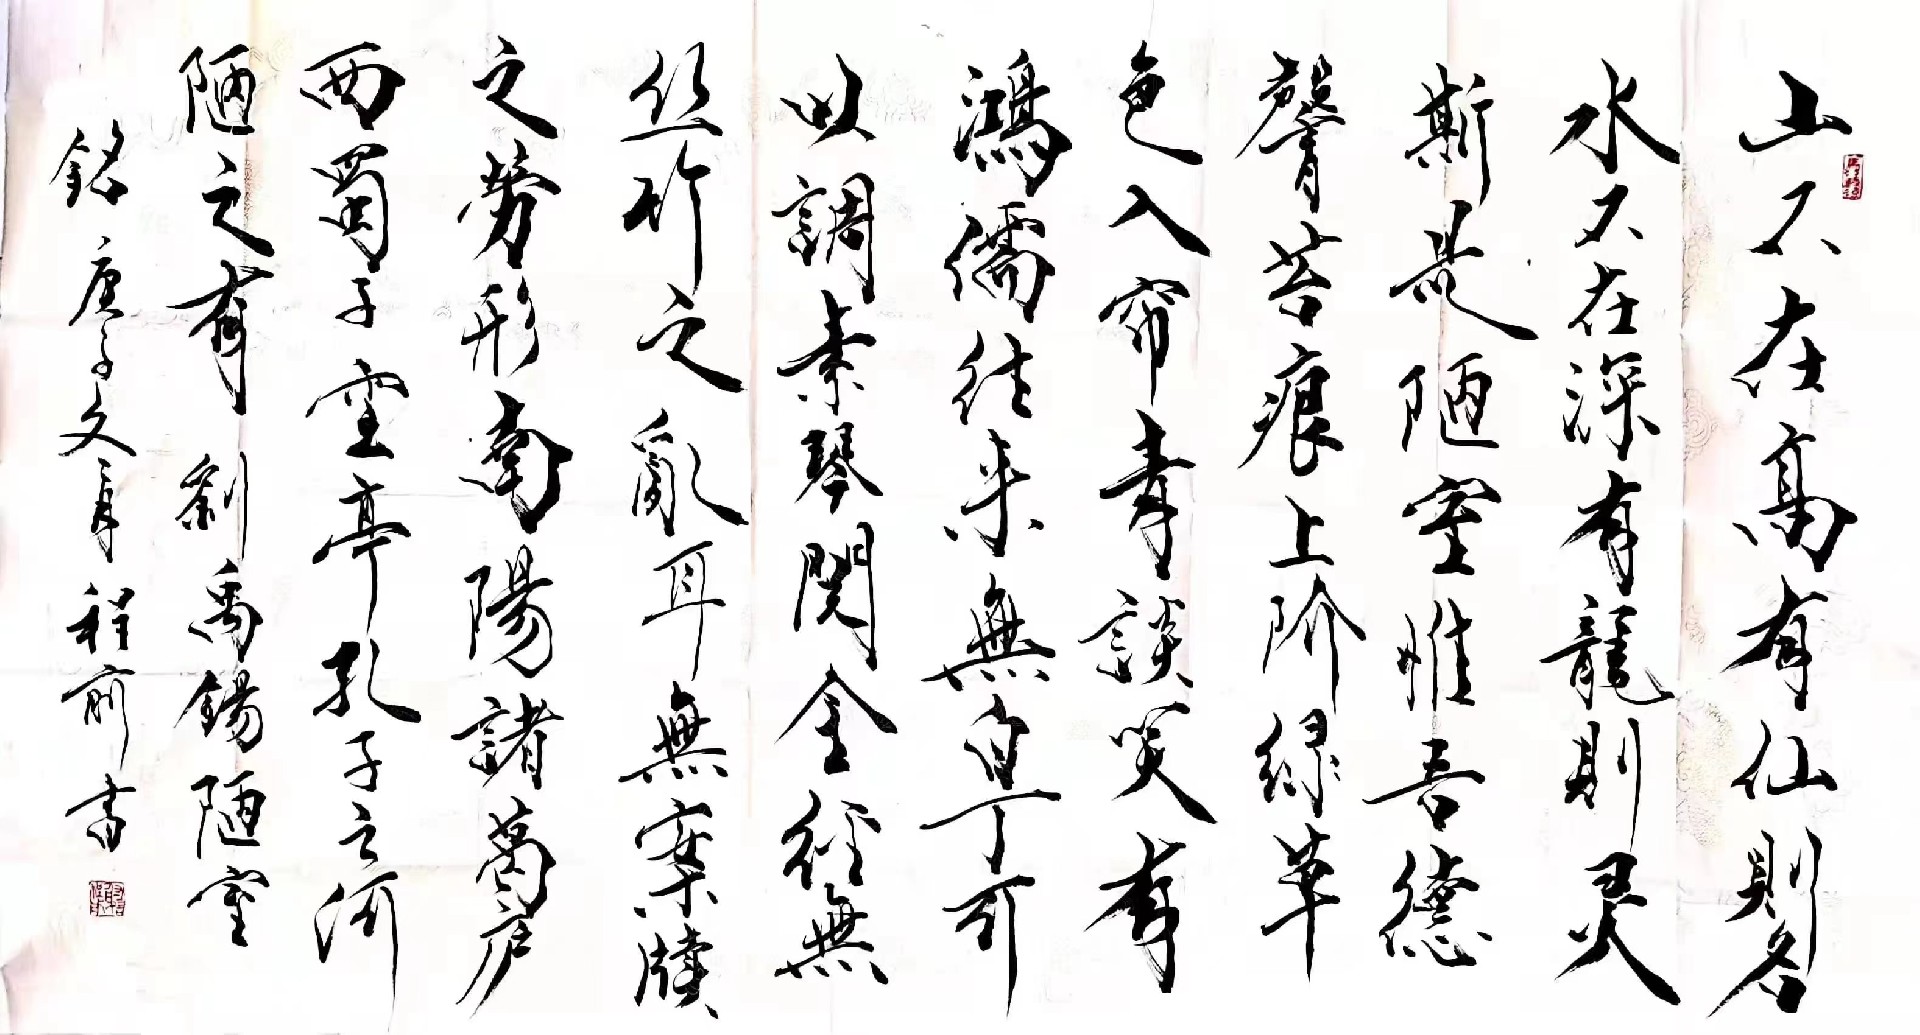 山不在高有仙則名
水不在深有龍則灵
斯是陋室惟吾德
馨苔痕上阶緑草
色入帘青談笑有
鴻儒往来無白丁可
以調素琴閱金经無
丝竹之亂耳無案牘
之劳形南陽諸葛庐
西蜀子雲亭孔子云何
陋之有 劉禹錫陋室
銘 庚子 程前書